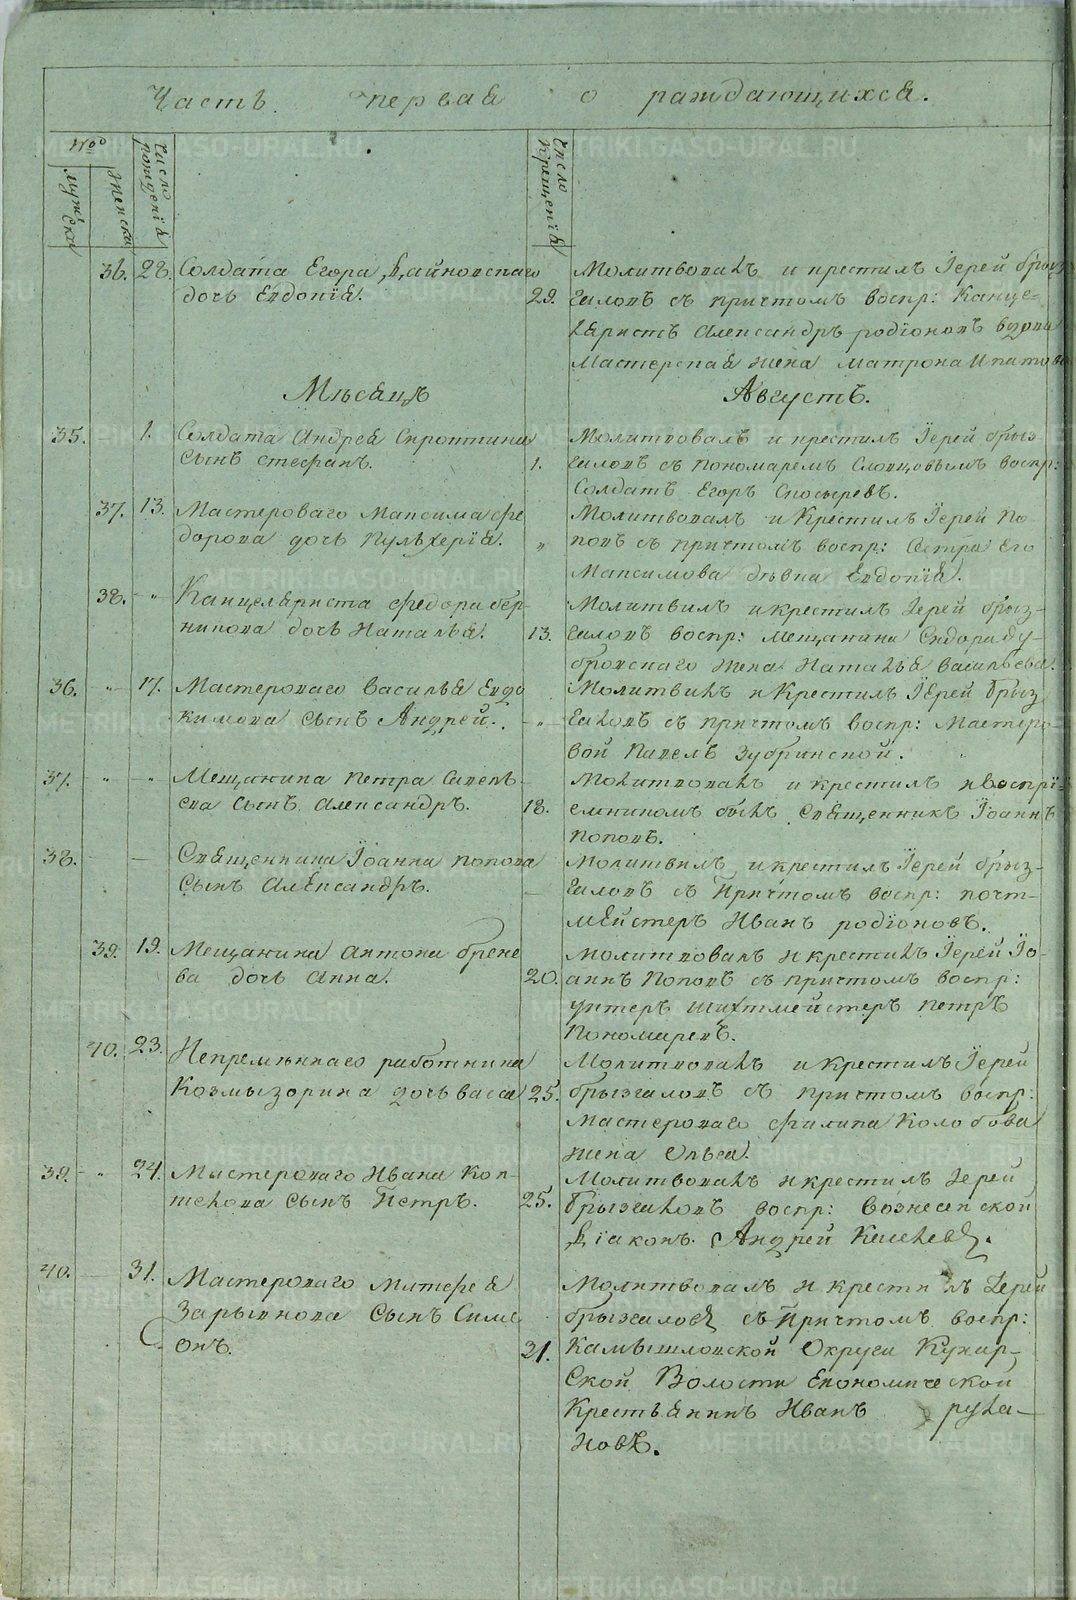 Часть первая о раждающихся.
№о
мужеска
женска
Число рождения
Число крещенїя
36. 28. Солдата Егора Дайновскаго
дочь Евдокїя.
29.
Молитвовалъ и крестилъ Іерей брыз
галовъ съ причтомъ воспр: Канце-
ляристъ Александръ родїоновъ вдова
Мастерская жена матрона Ипатова
Мѣсяцъ Августъ.
35. - 1. Солдата Андрея
сынъ стефанъ.
1.
Молитвовалъ и крестилъ Їерей брыз-
галовъ съ пономаремъ Словцовымъ воспр:
Солдатъ Егоръ
37. 13. Мастероваго Максима фе
дорова дочь Пульхерїя.
„
Молитвовалъ и Крестилъ Їерей По-
повъ съ причтомъ воспр: Сестра Его
Максимова дѣвка Евдокїя.
38. - „ Канцеляриста федора бер-
никова дочь Наталья.
13.
Молитвилъ и крестилъ Іерей брыз-
галовъ воспр: мещанина Сидора ду-
бровскаго жена Наталья васильева.
36. „ 17. Мастероваго василья Евдо
кимова сынъ Андрей.
- „
Молитвилъ и Крестилъ Їерей брыз
галовъ съ причтомъ воспр: Мастеро-
вой Павелъ Зубринской.
37. „ „ Мещанина Петра Савель-
ева сынъ Александръ.
18.
Молитвовалъ и крестилъ и воспрї-
емникомъ былъ Священникъ Їоаннъ
Поповъ.
38. - — Священника Їоанна попова
сынъ Александръ.
—
Молитвилъ и крестилъ Їерей брыз-
галовъ съ Причтомъ воспр: почт-
мейстеръ Иванъ родїоновъ.
39. 19. Мещанина антона брене
ва дочь Анна.
20.
молитвовалъ и крестилъ Їерей Їо-
аннъ Поповъ съ причтомъ воспр:
унтеръ шихтмейстеръ петръ
Пономаревъ.
40. 23. Непремѣннаго работника
Козмы зорина дочь васса
25.
Молитвовалъ и крестилъ Їерей
брызгаловъ съ причтомъ воспр:
мастероваго филипа Колобова
жена Ольга.
39. - „ 24. Мастероваго Ивана Коп-
телова сынъ Петръ.
25.
Молитвовалъ и крестилъ Іерей
брызгаловъ воспр: вознесенской
Дїаконъ Андрей Киселевъ.
40. — 31. Мастероваго матфея
Зарывнова сынъ Симе
онъ.
31.
Молитвовалъ и крестилъ Іерей
брызгаловъ съ Причтомъ воспр:
Камышловской Округи Кунар-
ской Волости Економической
Крестьянинъ Иванъ рула-
новъ.